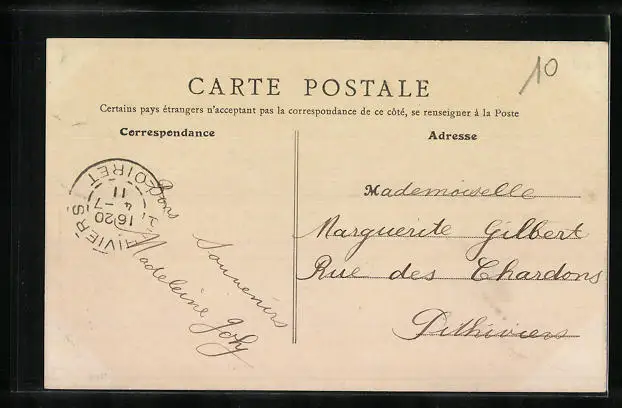 10
CARTE POSTALE
Certains pays étrangers n'acceptant pas la correspondance de ce côté, se renseigner à la Poste
Correspondance
Adresse
Bons
Souvenirs
Madeleine Joly
Mademoiselle
Marguerite Gilbert
Rue des Chardons
Pithiviers
LOIRET
11
4-7
16 20